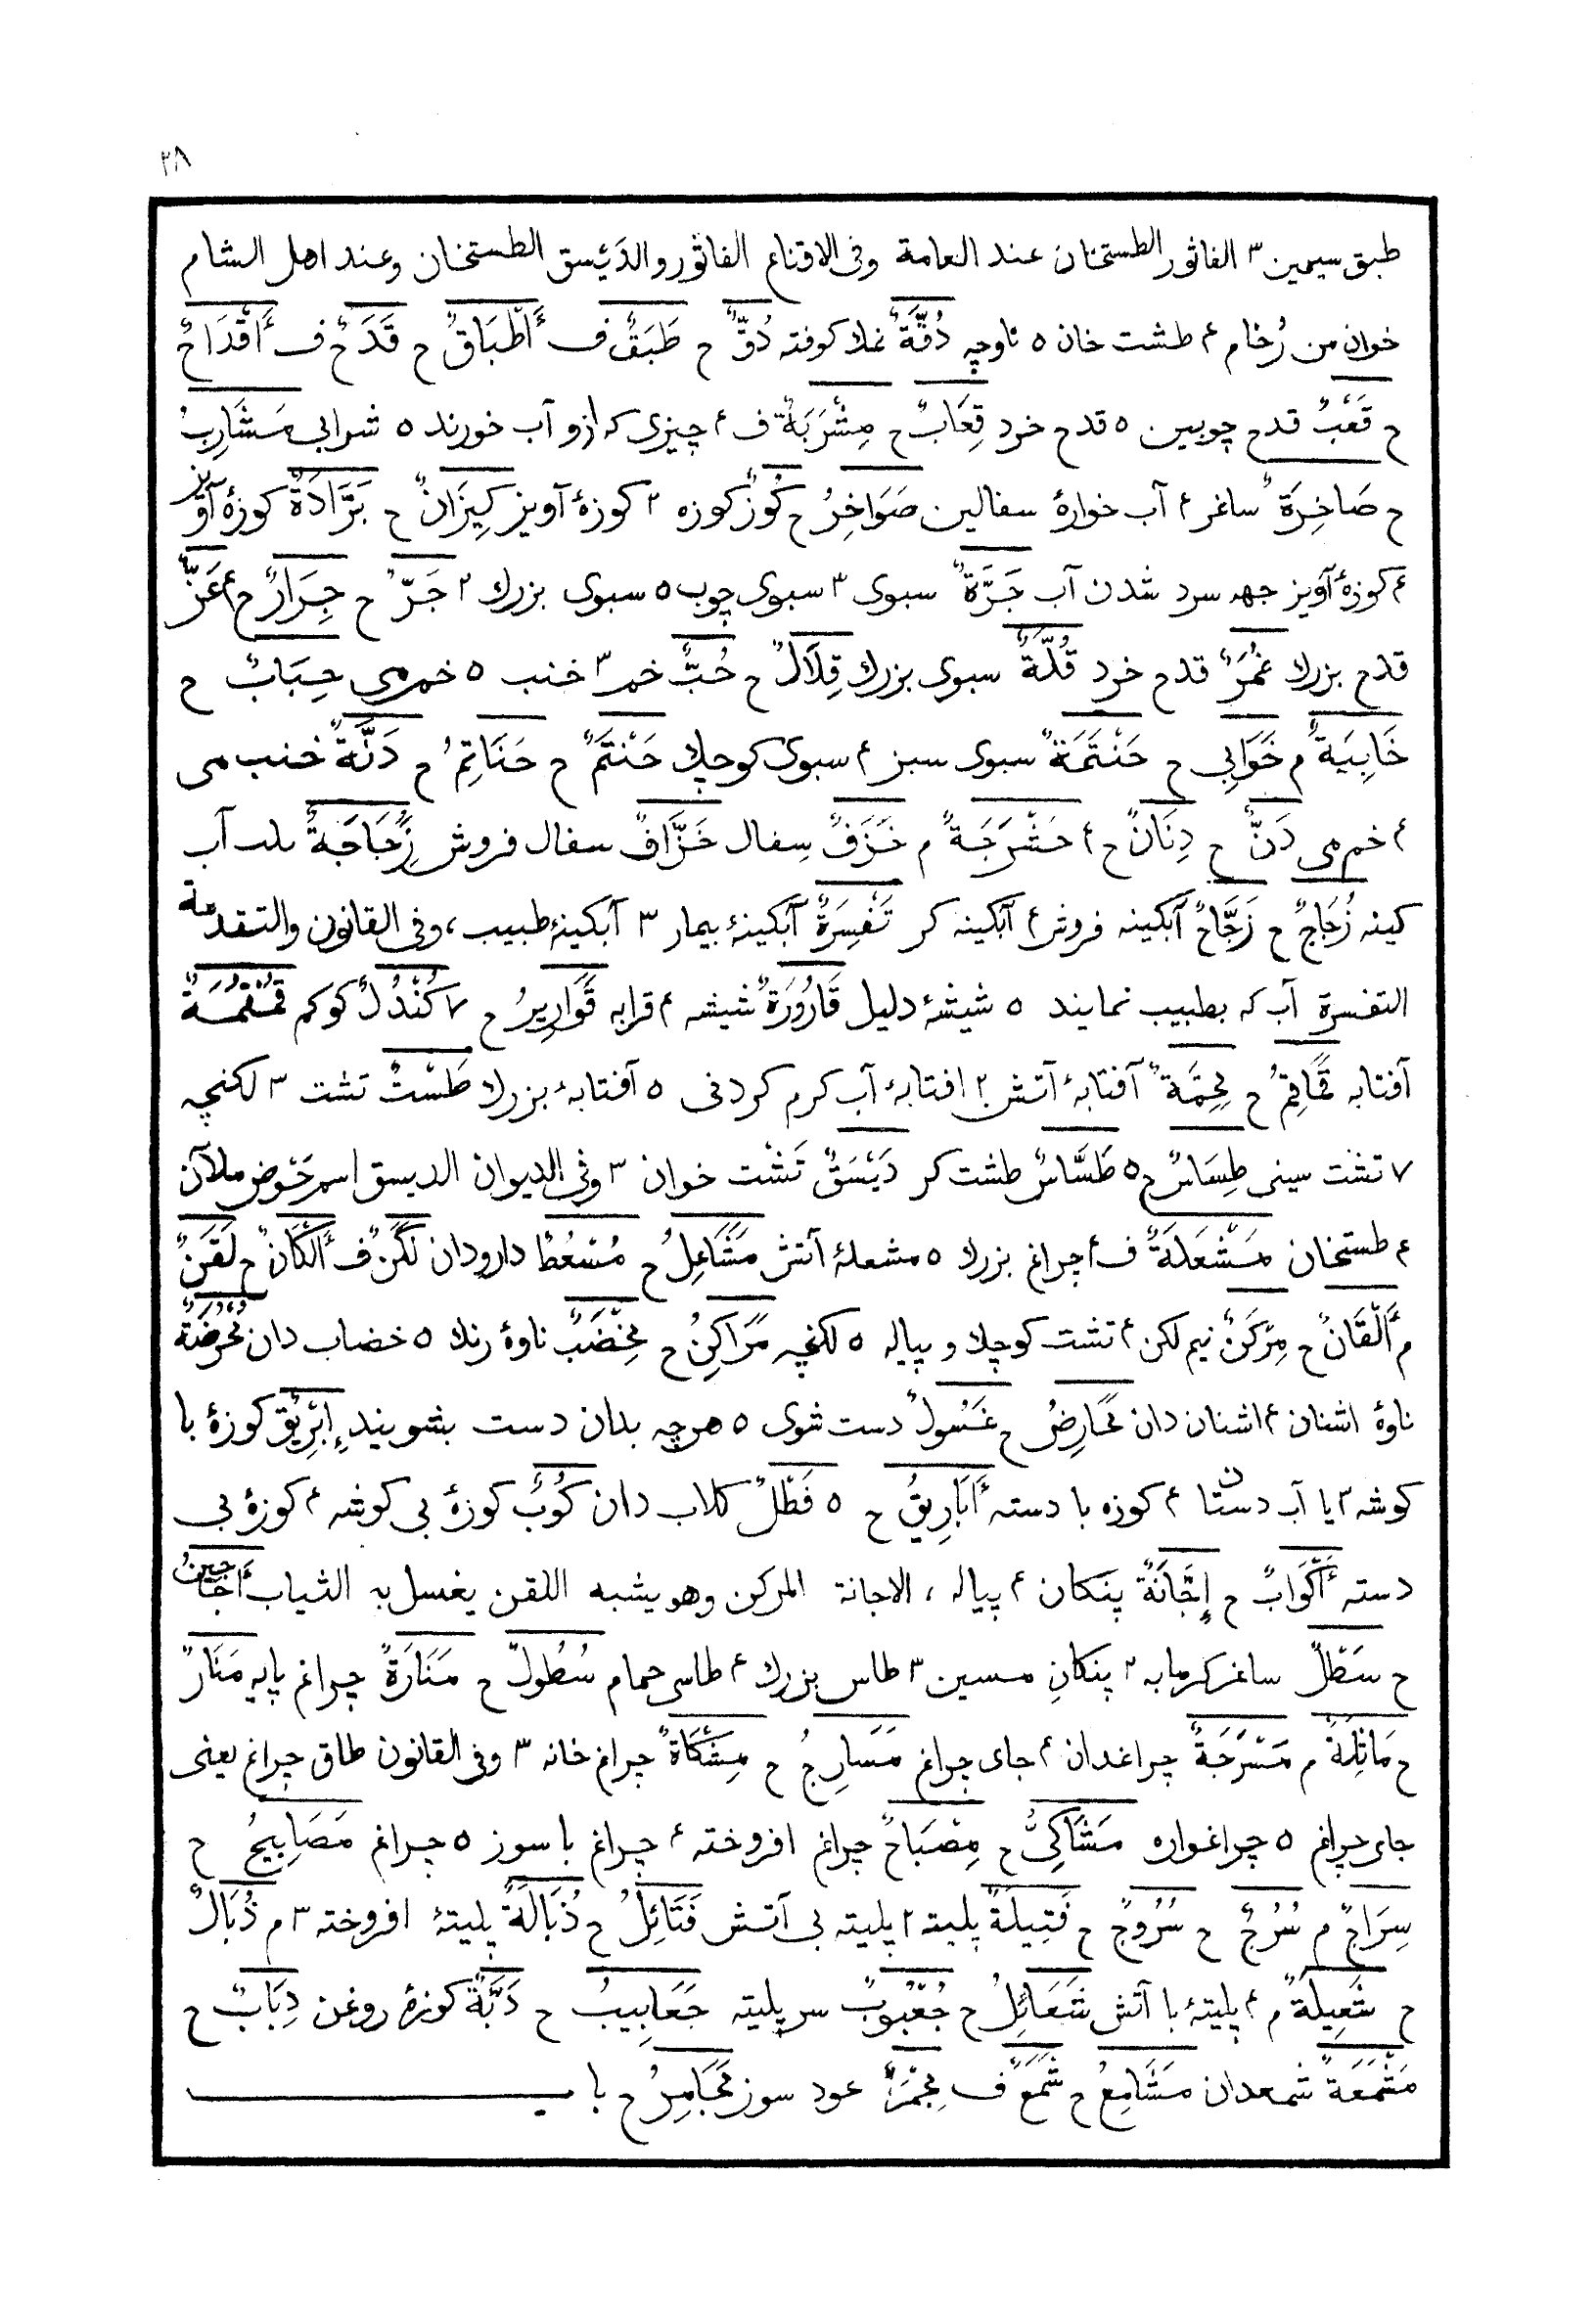 ۳۸
طبق سیمین ۳ الفاثور الطستخان عند العامة وفی الاقناع الفاثور والدَیْسق الطستخان وعند اهل الشام
خوان من رُخام ۴ طشت خان ۵ ناوچه دُقَّةٌ نمك كوفته دُقٌّ ح طَبَقٌ ف أَطْبَاقٌ ح قَدَحٌ ف أَقْدَاحٌ
ح قَعْبٌ قدح چوبین ۵ قدح خرد قِعَابٌ ح مِشْرَبَةٌ ف ۴ چیزی که ازو آب خورند ۵ شرابی مَشَارِبُ
ح صَاخِرَةٌ ساغر ۴ آب خوارهٔ سفالین صَوَاخِرُ ح كُوزٌ کوزه ۲ کوزهٔ آویز كِيزَانٌ ح بَرَّادَةٌ کوزهٔ آویز
۴ کوزهٔ آویز جهه سرد شدن آب جَرَّةٌ سبوی ۳ سبوی چوب ۵ سبوی بزرك ۲ جَرٌّ ح جِرَارٌ ح ۴
قدح بزرك غُمَرٌ قدح خرد قُلَّةٌ سبوی بزرك قِلَالٌ ح حُبٌّ خم ۳ خنب ۵ خم می حِبَابٌ ح
خَابِيَةٌ م خَوَابِي ح حَنْتَمَةٌ سبوی سبز ۴ سبوی کوچك حَنْتَمٌ ح حَنَاتِمُ ح دَنَّةٌ خنب می
۴ خم می دَنٌّ ح دِنَانٌ ح ۴ حَشْرَجَةٌ م خَزَفٌ سفال خَزَّافٌ سفال فروش زُجَاجَةٌ آب
کینه زُجَاجٌ ح زَجَّاجٌ آبکینه فروش ۴ آبکینه کر تَفْسِرَةٌ آبکینهٔ بیمار ۳ آبکینهٔ طبیب، وفی القانون والتقدمة
التفسرة آب که بطبیب نمایند ۵ شیشهٔ دلیل قَارُورَةٌ شیشه ۴ قرابه قَوَارِيرُ ح ۷ كُنْدُلٌ کوکم قُمْقُمَةٌ
آفتابه قَمَاقِمُ ح مِحَمَّةٌ آفتابهٔ آتش ۲ افتابهٔ آب کرم کردنی ۵ آفتابهٔ بزرك طَسْتٌ تشت ۳ لکنچه
۷ تشت سینی طِسَاسٌ ح ۵ طَسَّاسٌ طشت کر دَيْسَقٌ تَشْت خوان ۳ وفی الدیوان الدیسق اسم حَوْض ملآن
۴ طستخان مَشْعَلَةٌ ف ۴ چراغ بزرك ۵ مشعلهٔ آتش مَشَاعِلُ ح مُسْعُطٌ دارودان لَكَنٌ ف أَلْكَانٌ ح لَقَنٌ
م أَلْقَانٌ ح مِرْكَنٌ نیم لکن ۴ تشت کوچك و پیاله ۵ لکنچه مَرَاكِنُ ح مِخْضَبٌ ناوهٔ رنك ۵ خضاب دان مُحْرُضَةٌ
ناوهٔ اشنان ۴ اشنان دان مَحَارِضُ ح غَسُولٌ دست شوی ۵ هرچه بدان دست بشویند إِبْرِيقٌ کوزهٔ با
کوشه ۳ یا آب دستان ۴ کوزه با دسته أَبَارِيقُ ح ۵ فَظْلٌ کلاب دان كُوبٌ کوزهٔ بی کوشه ۴ کوزهٔ بی
دسته أَكْوَابٌ ح إِجَّانَةٌ پنکان ۴ پیاله، الاجانة المرکن وهو یشبه اللقن یغسل به الثیاب أَجَاجِينُ
ح سَطْلٌ ساغر کرمابه ۲ پنکانِ مسین ۳ طاس بزرك ۴ طاس حمام سُطُولٌ ح مَنَارَةٌ چراغ پایه مَنَارٌ
ح مَاثِلَةٌ م مَسْرَجَةٌ چراغدان ۴ جای چراغ مَسَارِجُ ح مِشْكَاةٌ چراغ خانه ۳ وفی القانون طاق چراغ یعنی
جای چراغ ۵ چراغواره مَشَاكِيُّ ح مِصْبَاحٌ چراغ افروخته ۴ چراغ با سوز ۵ چراغ مَصَابِيحُ ح
سِرَاجٌ م سُرُجٌ ح سُرُوجٌ ح فَتِيلَةٌ پلیته ۲ پلیته بی آتش فَتَائِلُ ح ذُبَالَةٌ پلیتهٔ افروخته ۳ م ذُبَالٌ
ح شَعِيلَةٌ م ۴ پلیتهٔ با آتش شَعَائِلُ ح جُعْبُوبٌ سر پلیته جَعَابِيبُ ح دَبَّةٌ کوزهٔ روغن دِبَابٌ ح
مَشْمَعَةٌ شمعدان مَشَامِعُ ح شَمَعٌ ف مِجْمَرٌ عود سوز مَجَامِرُ ح باب